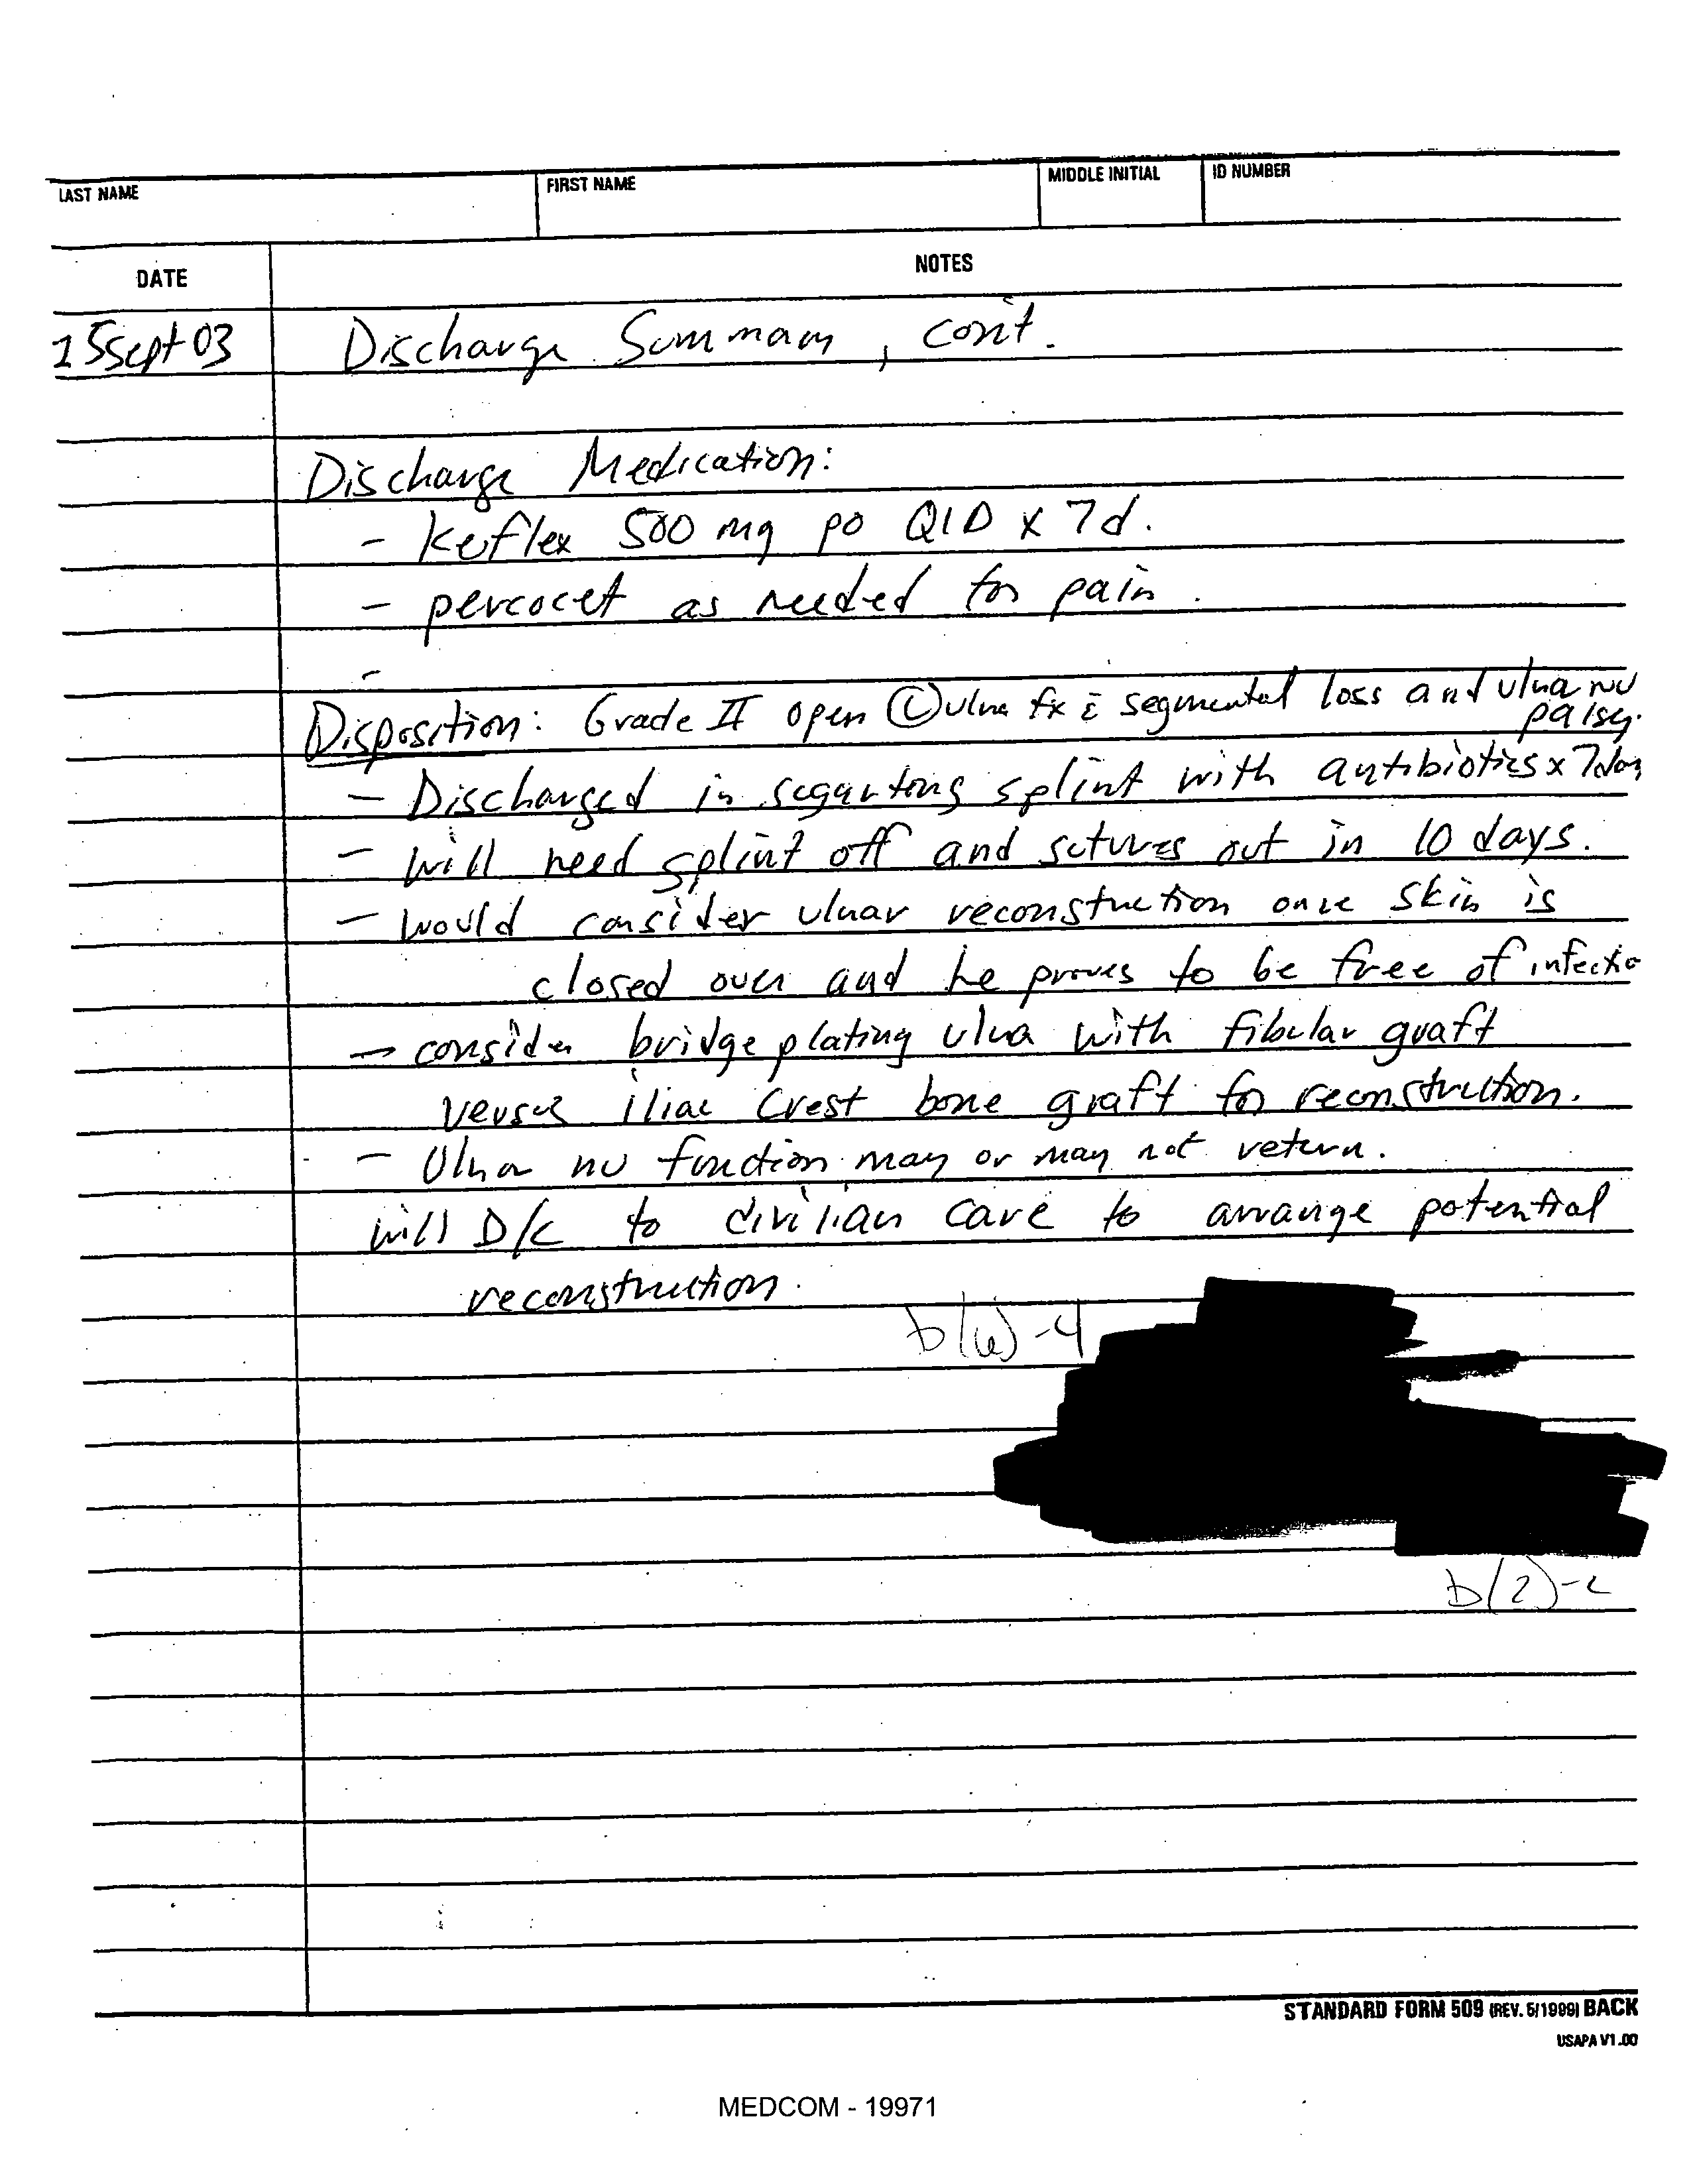 LAST NAME FIRST NAME MIDDLE INITIAL ID NUMBER
DATE NOTES
15Sept 03 Discharge Summary, cont.
Discharge Medication:
- Keflex 500 mg po QID x 7d.
- percocet as needed for pain.
-
Disposition: Grade II open Ⓛ ulna fx c̄ segmental loss and ulna nv
palsy.
- Discharged in sugartong splint with antibiotics x 7days
- Will need splint off and sutures out in 10 days.
- Would consider ulnar reconstruction once skin is
closed over and he proves to be free of infectio
- consider bridge plating ulna with fibular graft
versus iliac crest bone graft for reconstruction.
- Ulna nv function may or may not return.
will D/c to civilian care to arrange potential
reconstruction.
b(6)-4
b(2)-2
STANDARD FORM 509 (REV. 5/1999) BACK
USAPA V1.00
MEDCOM - 19971